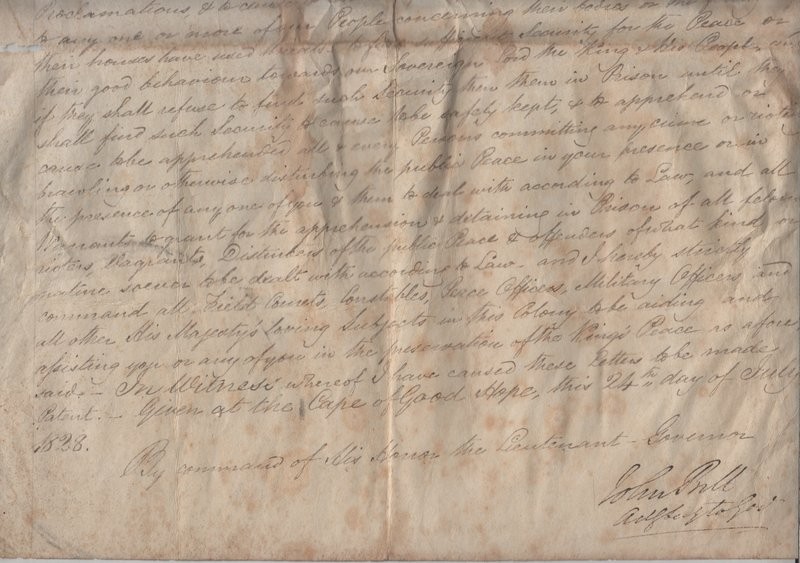 Proclamations, & to cause
to any one or more of our People concerning their bodies or the
their houses have used threats to find sufficient Security for the Peace or
their good behaviour towards our Sovereign Lord the King & His People, and
if they shall refuse to find such Security then them in Prison until they
shall find such Security to cause to be safely kept, & to apprehend or
cause to be apprehended all & every Persons committing any crime or
brawling or otherwise disturbing the public Peace in your presence or in
the presence of any one of you & them to deal with according to Law, and all
Warrants to grant for the apprehension & detaining in Prison of all felons
rioters, Vagrants, Disturbers of the public Peace & offenders of what kind or
nature soever to be dealt with according to Law – and I hereby strictly
command all Field Cornets, Constables, Peace Officers, Military Officers and
all other His Majesty's loving Subjects in this Colony to be aiding and
assisting you or any of you in the preservation of the King's Peace as afore
said – In Witness whereof I have caused these Letters to be made
Patent. – Given at the Cape of Good Hope, this 24th day of July
1828.
By command of His Honor the Lieutenant-Governor
John Bell
to Govt